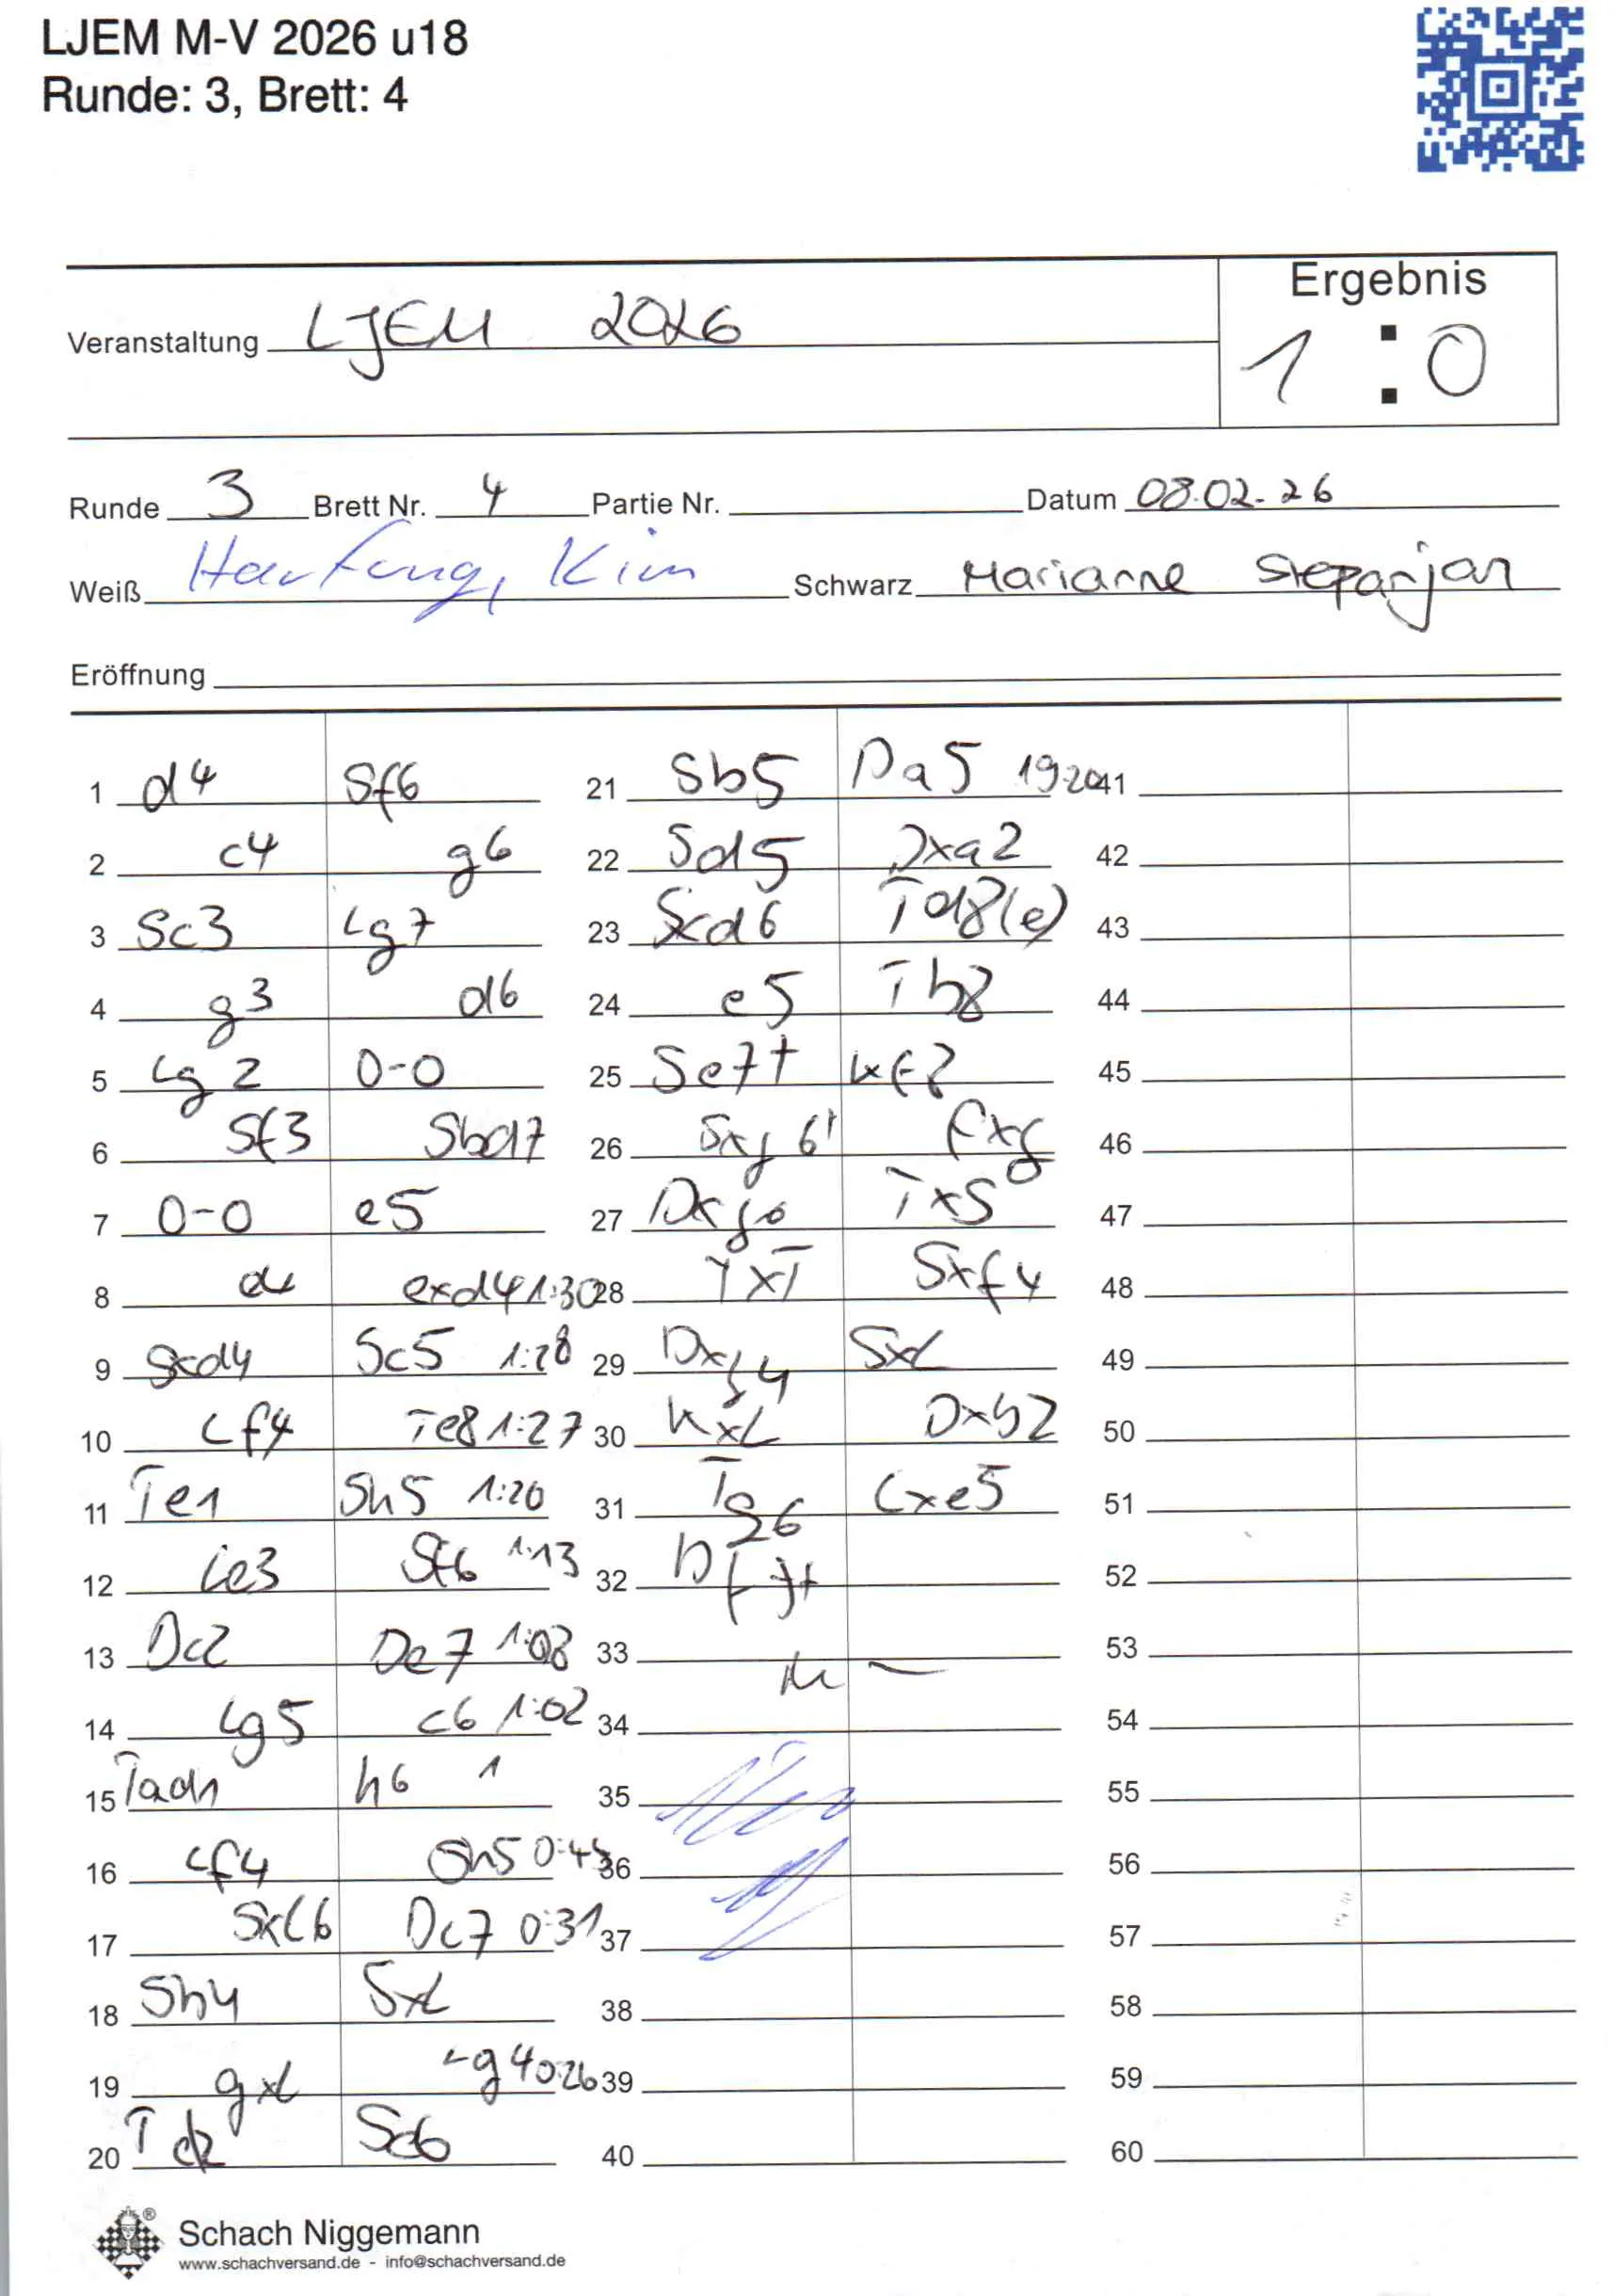 LJEM M-V 2026 u18
Runde: 3, Brett: 4
Ergebnis
Veranstaltung LJEM 2026
1 : 0
Runde 3 Brett Nr. 4 Partie Nr. Datum 08.02.26
Weiß Hartung, Kim Schwarz Marianne Stepanjan
Eröffnung
1 d4 Sf6
2 c4 g6
3 Sc3 Lg7
4 g3 d6
5 Lg2 0-0
6 Sf3 Sbd7
7 0-0 e5
8 e4 exd4 1:30
9 Sxd4 Sc5 1:28
10 Lf4 Te8 1:27
11 Te1 Sh5 1:20
12 Le3 Sf6 1:13
13 Dc2 De7 1:08
14 Lg5 c6 1:02
15 Tad1 h6 1
16 Lf4 Sh5
17 Sxc6 Dc7 0:31
18 Sb4 SxL
19 gxL Lg4 0:26
20 Td2 Se6
21 Sb5 Da5
22 Sd5 Dxa2
23 Sxd6 Td8(e)
24 e5 Tb8
25 Se7+ Kf8
26 Sxg6+ fxg
27 Dxg6 TxS
28 TxT Sxf4
29 Dxg4 SxL
30 KxL Dxb2
31 Tg6 Lxe5
32 Df3+
33
34
35
36
37
38
39
40
41
42
43
44
45
46
47
48
49
50
51
52
53
54
55
56
57
58
59
60
Schach Niggemann
www.schachversand.de - info@schachversand.de